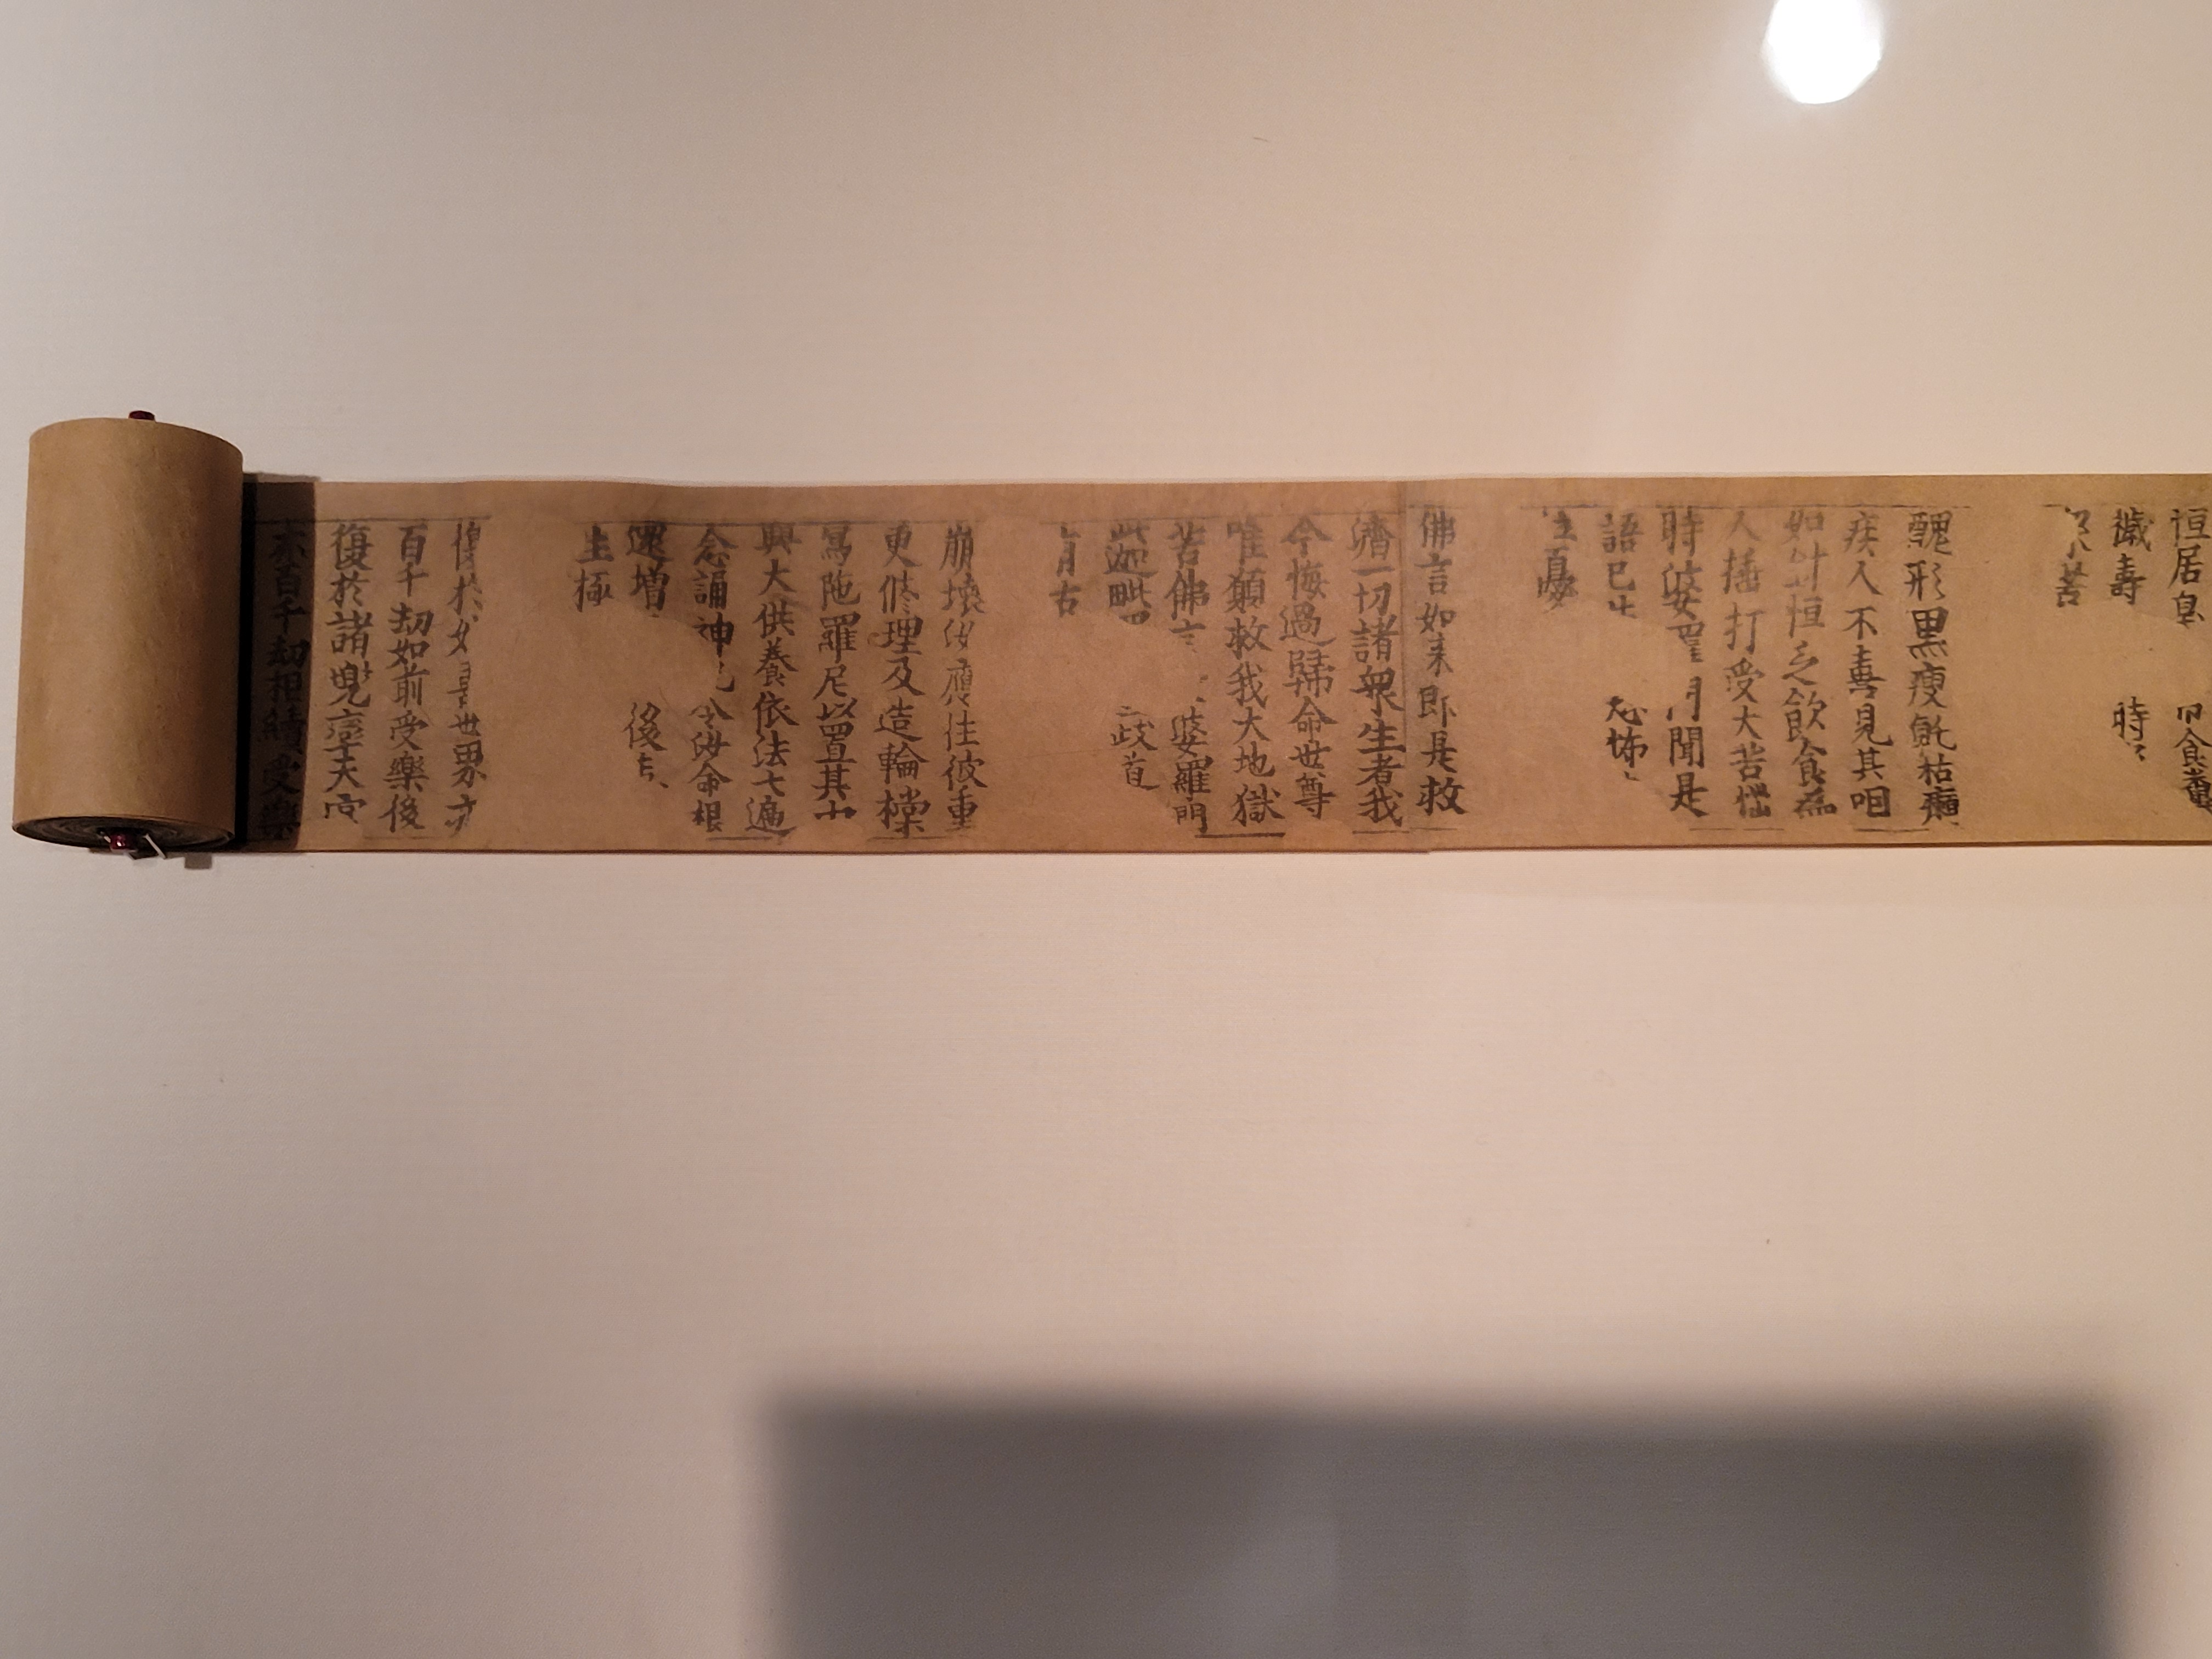 恒居皂 食糞
歲壽 時
苦
醜形黒瘦 枯癩
疾人不喜見其咽
如 恒乏飲食
人捶打受大苦惱
時婆 聞是
語已 怖
生憂
佛言如来即是救
濟一切諸衆生者我
今悔過歸命世尊
唯願救我大地獄
苦佛言 婆羅門
此迦毗 三歧道
有古
崩壞汝應往彼重
更修理及造輪橖
寫陁羅尼以置其中
興大供養依法七遍
念誦神 令汝命根
還增 後
生極
復於 喜世界亦
百千劫如前受樂後
復於諸覩 天宮
亦百千劫相續受樂